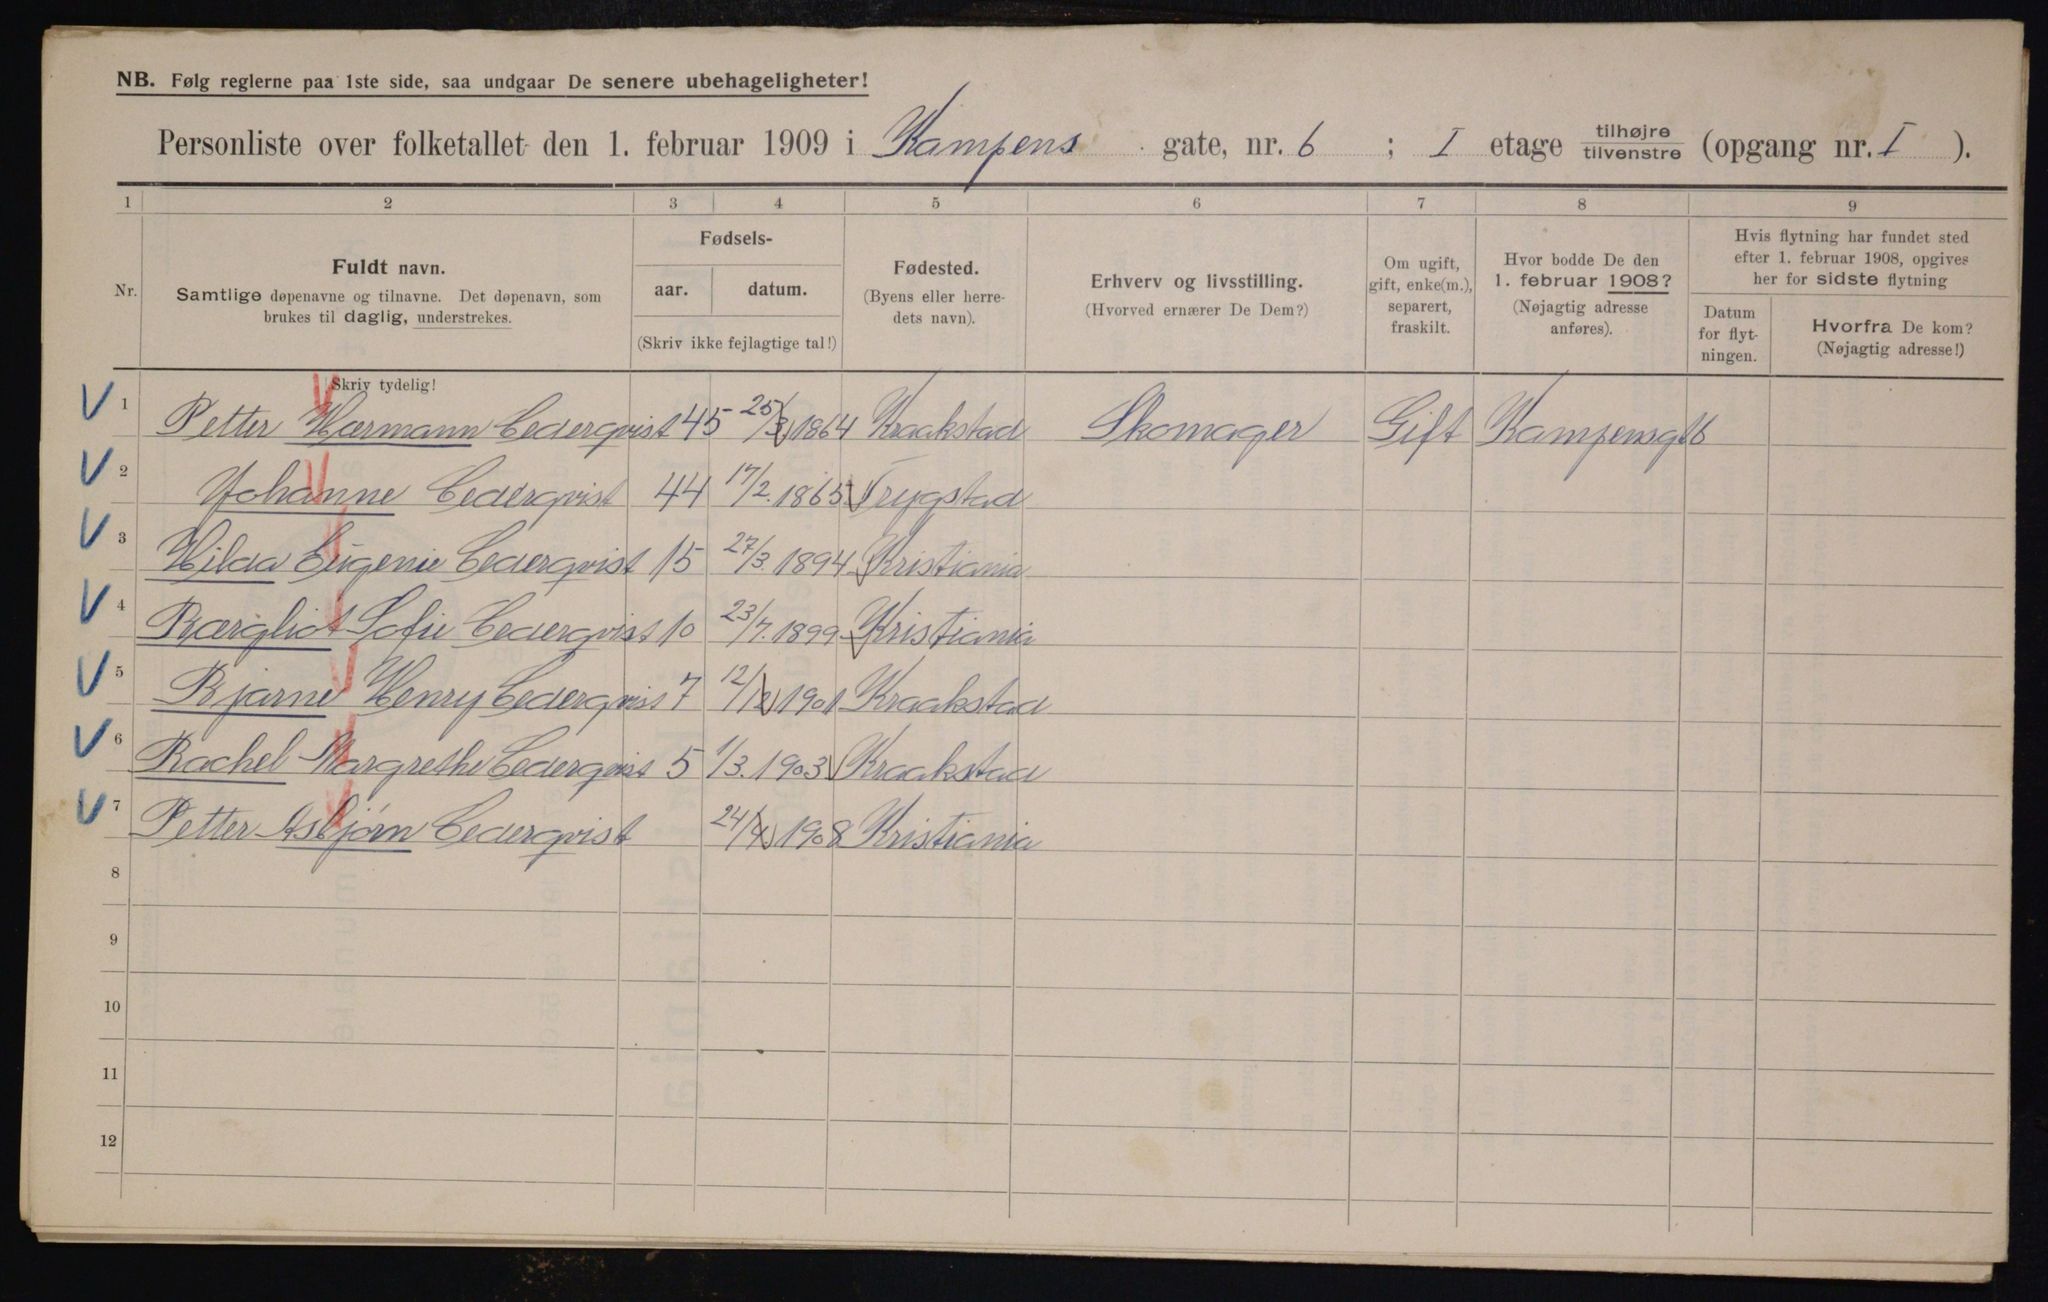 NB. Følg reglerne paa 1ste side, saa undgaar De senere ubehageligheter!
Personliste over folketallet den 1. februar 1909 i Kampens gate, nr. 6 ; I etage tilhøjre tilvenstre (opgang nr. I ).
1 2 3 4 5 6 7 8 9
Nr.
Fuldt navn.
Samtlige døpenavne og tilnavne. Det døpenavn, som
brukes til daglig, understrekes.
Fødsels-
aar. datum.
(Skriv ikke fejlagtige tal!)
Fødested.
(Byens eller herre-
dets navn).
Erhverv og livsstilling.
(Hvorved ernærer De Dem?)
Om ugift,
gift, enke(m.),
separert,
fraskilt.
Hvor bodde De den
1. februar 1908?
(Nøjagtig adresse
anføres).
Hvis flytning har fundet sted
efter 1. februar 1908, opgives
her for sidste flytning
Datum
for flyt-
ningen.
Hvorfra De kom?
(Nøjagtig adresse!)
Skriv tydelig!
1 Petter Hærmann Cederqvist 45 25/3 1864 Kraakstad Skomager Gift Kampensgt 6
2 Johanne Cederqvist 44 17/2. 1865 Trygstad
3 Hilda Eugenie Cederqvist 15 27/3. 1894 Kristiania
4 Bærgliot Sofie Cederqvist 10 23/7. 1899 Kristiania
5 Bjarne Henry Cederqvist 7 12/12 1901 Kraakstad
6 Rachel Margrethe Cederqvist 5 1/3. 1903 Kraakstad
7 Petter Asbjørn Cederqvist 24/4 1908 Kristiania
8
9
10
11
12